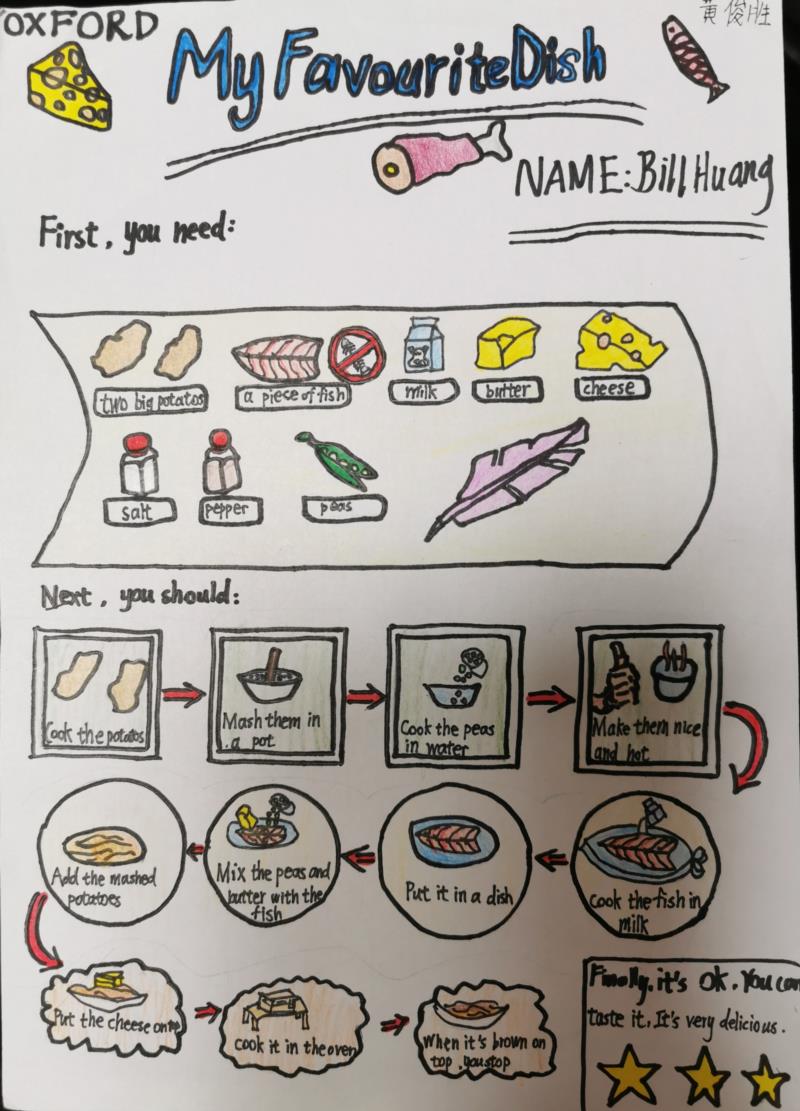 OXFORD
黄俊胜
My Favourite Dish
NAME: Bill Huang
First, you need:
two big potatos
a piece of fish
milk
butter
cheese
salt
pepper
peas
Next, you should:
Cook the potatos
Mash them in
a pot
Cook the peas
in water
Make them nice
and hot
Cook the fish in
milk
Put it in a dish
Mix the peas and
butter with the
fish
Add the mashed
potatoes
Put the cheese on top
cook it in the oven
When it's brown on
top, you stop
Finally, it's ok. You can
taste it. It's very delicious.